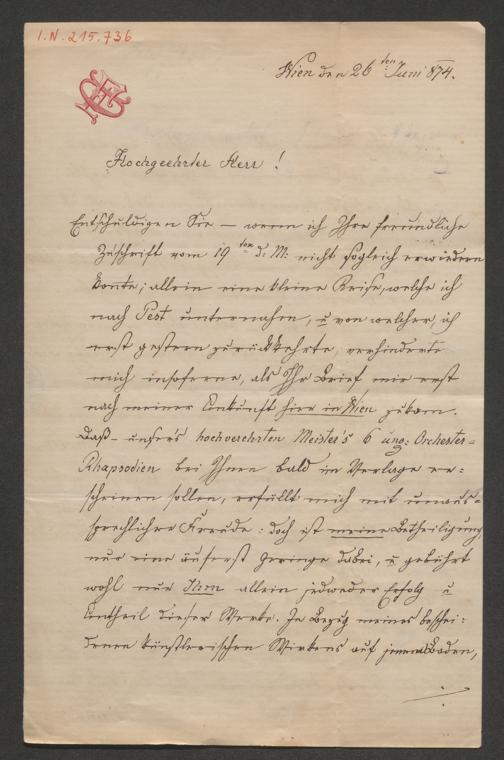 I.N. 215.736
Wien den 26ten Juni 874.
Hochgeehrter Herr!
Entschuldigen Sie – wenn ich Ihre freundliche
Zuschrift vom 19ten d: M: nicht sogleich erwiedern
konte; allein eine kleine Reise, welche ich
nach Pest unternahm, u von welcher ich
erst gestern zurückkehrte, verhinderte
mich insoferne, als Ihr Brief mir erst
nach meiner Ankunft hier in Wien zukam.
Daß – unsers hochverehrten Meister's 6 ung: Orchester-
Rhapsodien bei Ihnen bald im Verlage er-
scheinen sollen, erfüllt mich mit unaus-
sprechlicher Freude: doch ist meine Betheiligung
nur eine äußerst geringe dabei, u gebührt
wohl nur Ihm allein jedweder Erfolg u
Antheil dieser Werke. In Bezug meines beschei-
denen künstlerischen Wirkens auf jenem Boden,